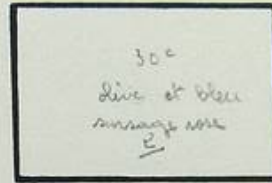 30 c
olive et bleu
surcharge rose